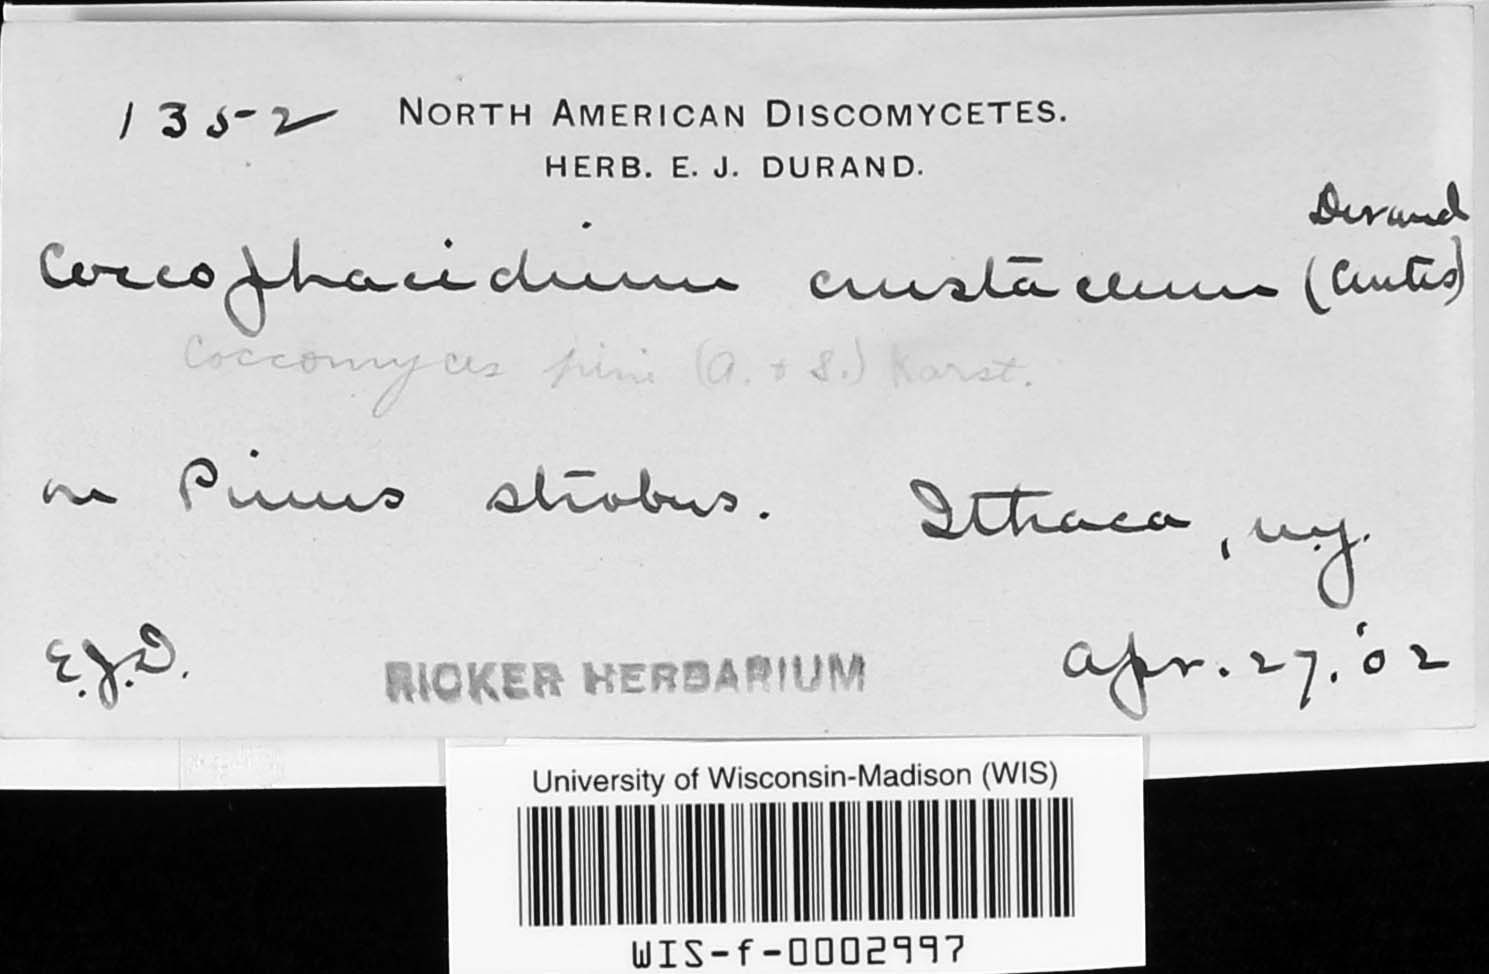 1352 NORTH AMERICAN DISCOMYCETES.
HERB. E. J. DURAND.
Durand
Coccophacidium crustaceum (Curtis)
Coccomyces pini (A. + S.) Karst.
on Pinus strobus. Ithaca, N.Y.
E.J.D. RICKER HERBARIUM Apr. 27. '02
University of Wisconsin-Madison (WIS)
WIS-f-0002997